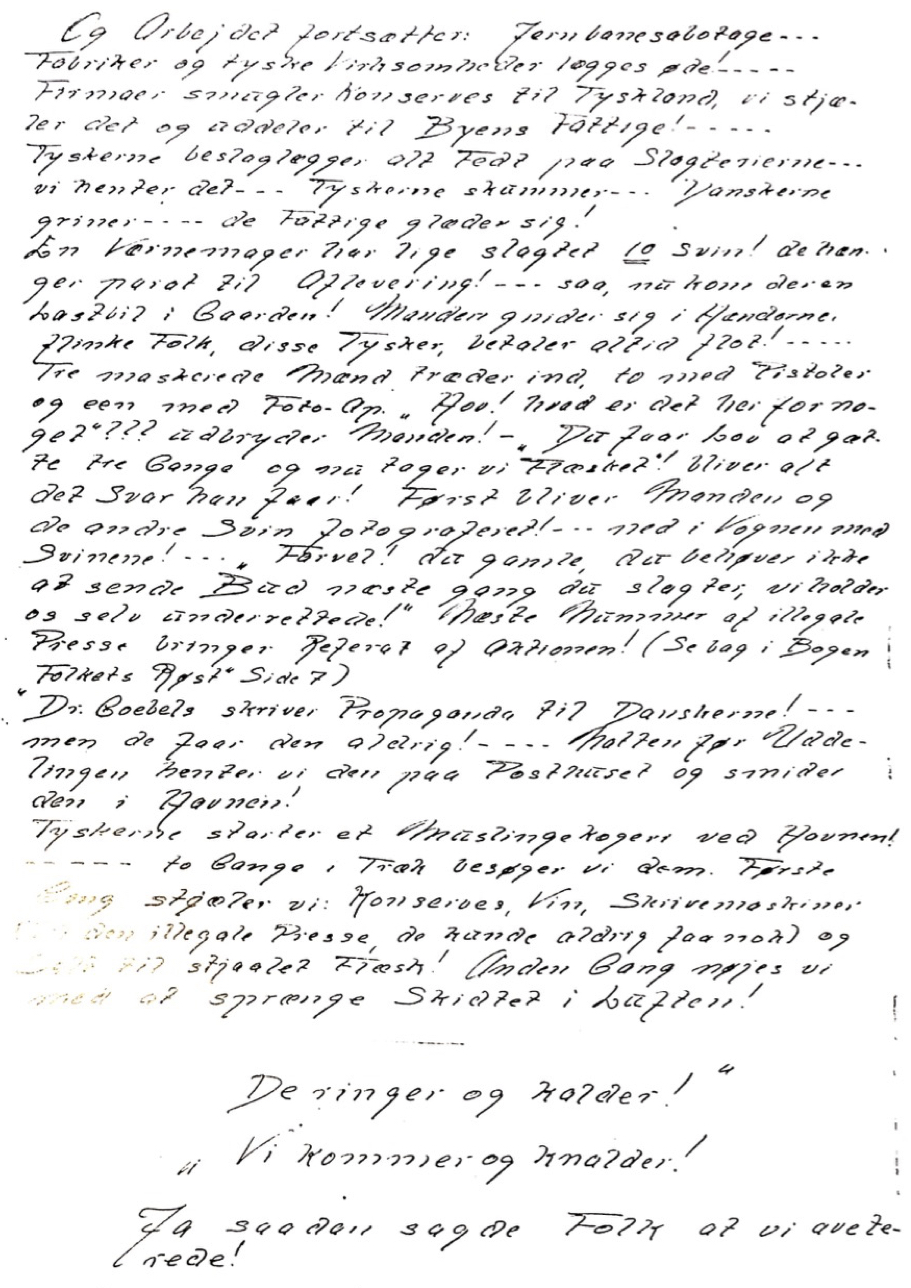 Og Arbejdet fortsætter: Jernbanesabotage---
Fabriker og tyske Virksomheder lægges øde!-----
Firmaer smugler Konserves til Tyskland, vi stjæ-
ler det og uddeler til Byens Fattige!-----
Tyskerne beslaglægger alt Fedt paa Slagterierne---
vi henter det--- Tyskerne skummer--- Danskerne
griner---- de Fattige glæder sig!
En Værnemager har lige slagtet 10 Svin! de hæn-
ger parat til Aflevering!--- saa, nu kom der en
Lastbil i Gaarden! Manden gnider sig i Hænderne,
flinke Folk, disse Tysker, betaler altid flot!-----
Tre maskerede Mænd træder ind, to med Pistoler
og een med Foto-Ap. „Hov! hvad er det her for no-
get"??? udbryder Manden!- „Du faar Lov at gæt-
te tre Gange og nu tager vi Flæsket"! bliver alt
det Svar han faar! Først bliver Manden og
de andre Svin fotograferet!--- ned i Vognen med
Svinene!--- „Farvel! du gamle, du behøver ikke
at sende Bud næste gang du slagter, vi holder
os selv underrettede!" Næste Nummer af illegale
Presse bringer Referat af Aktionen! (Se bag i Bogen
„Folkets Røst" Side 7)
"Dr. Goebels skriver Propaganda til Danskerne!---
men de faar den aldrig!---- Natten før Udde-
lingen henter vi den paa Posthuset og smider
den i Havnen!
Tyskerne starter et Muslingekogeri ved Havnen!
----- to Gange i Træk besøger vi dem. Første
Gang stjæler vi: Konserves, Vin, Skrivemaskiner
den illegale Presse, de kunde aldrig faa nok) og
til stjaalet Flæsk! Anden Gang nøjes vi
med at sprænge Skidtet i Luften!
De ringer og kalder!"
„Vi kommer og knalder!
Ja saadan sagde Folk at vi avete-
rede!